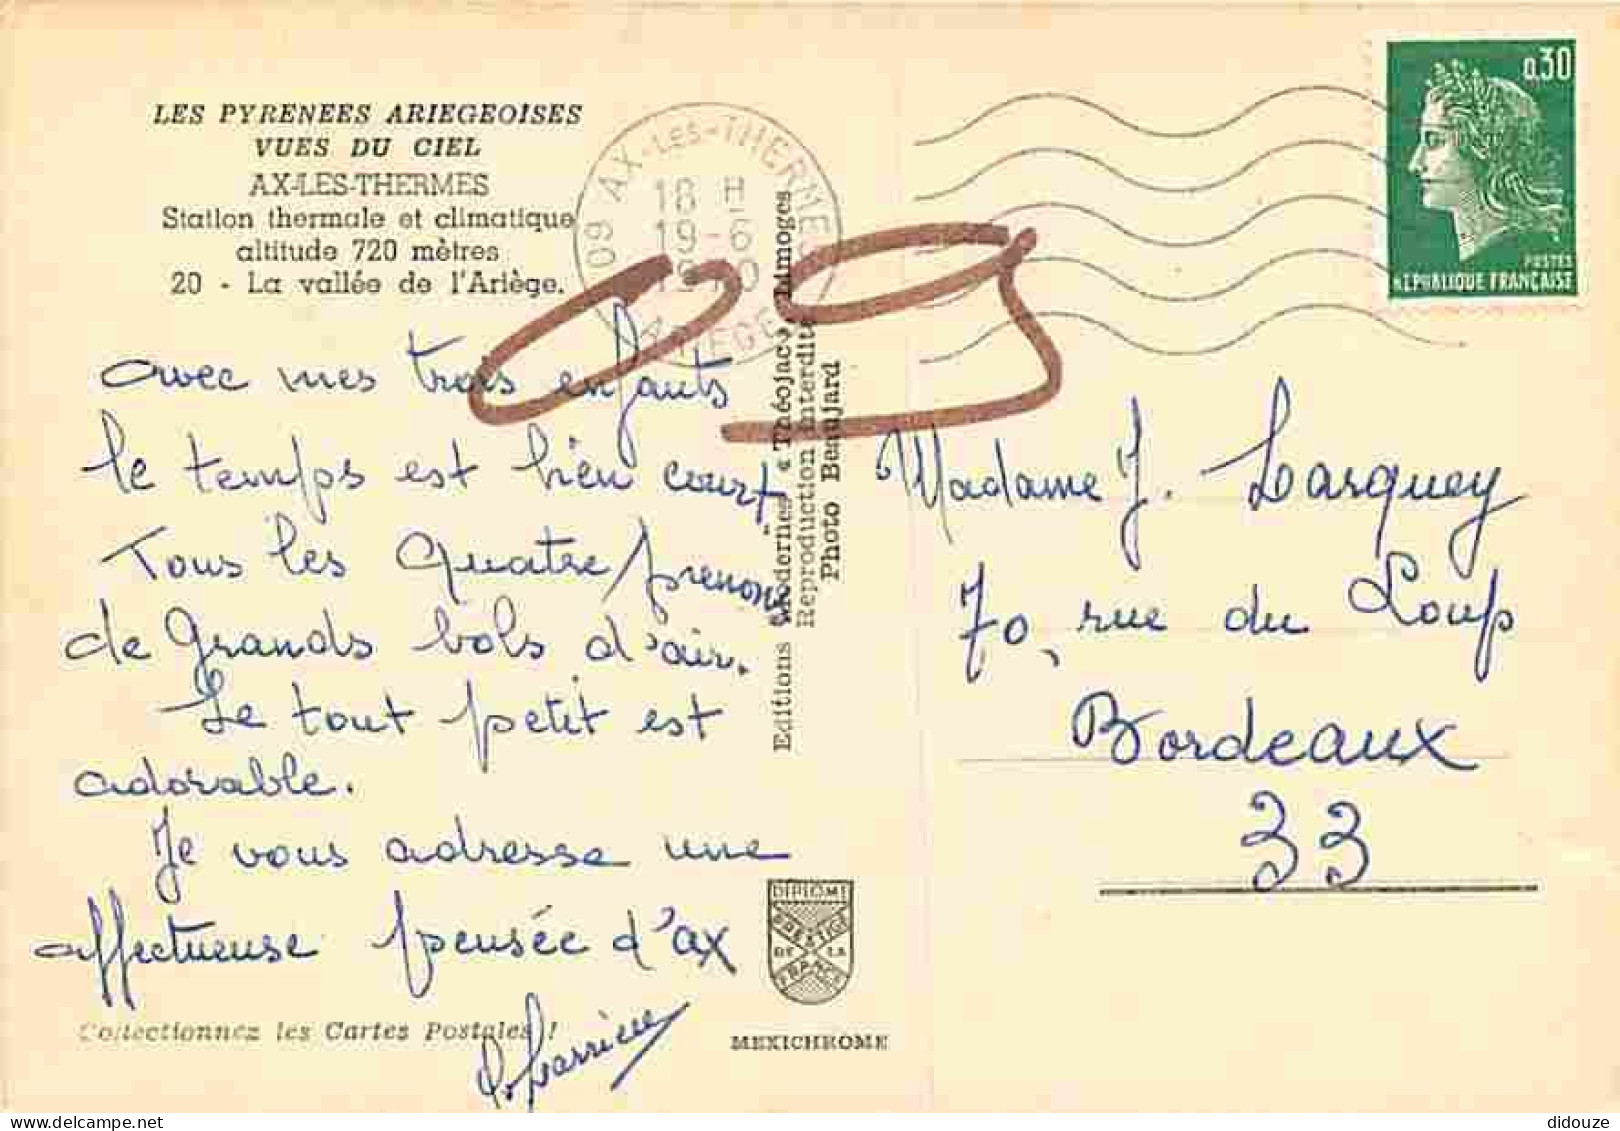 LES PYRENEES ARIEGEOISES
VUES DU CIEL
AX-LES-THERMES
Station thermale et climatique
altitude 720 mètres
20 - La vallée de l'Ariège.
avec mes trois enfants
le temps est bien court
Tous les quatre prenons
de grands bols d'air.
Le tout petit est
adorable.
Je vous adresse une
affectueuse pensée d'ax
Collectionnez les Cartes Postales !
09 AX-Les-THERMES
18 H
19-6
ARIEGE
Editions Modernes « Théojac », Limoges
Reproduction interdite
Photo Beaujard
DIPLOME
PRESTIGE
DE LA
FRANCE
MEXICHROME
0,30
POSTES
REPUBLIQUE FRANÇAISE
Madame J. Larquey
70, rue du Loup
Bordeaux
33
didouze